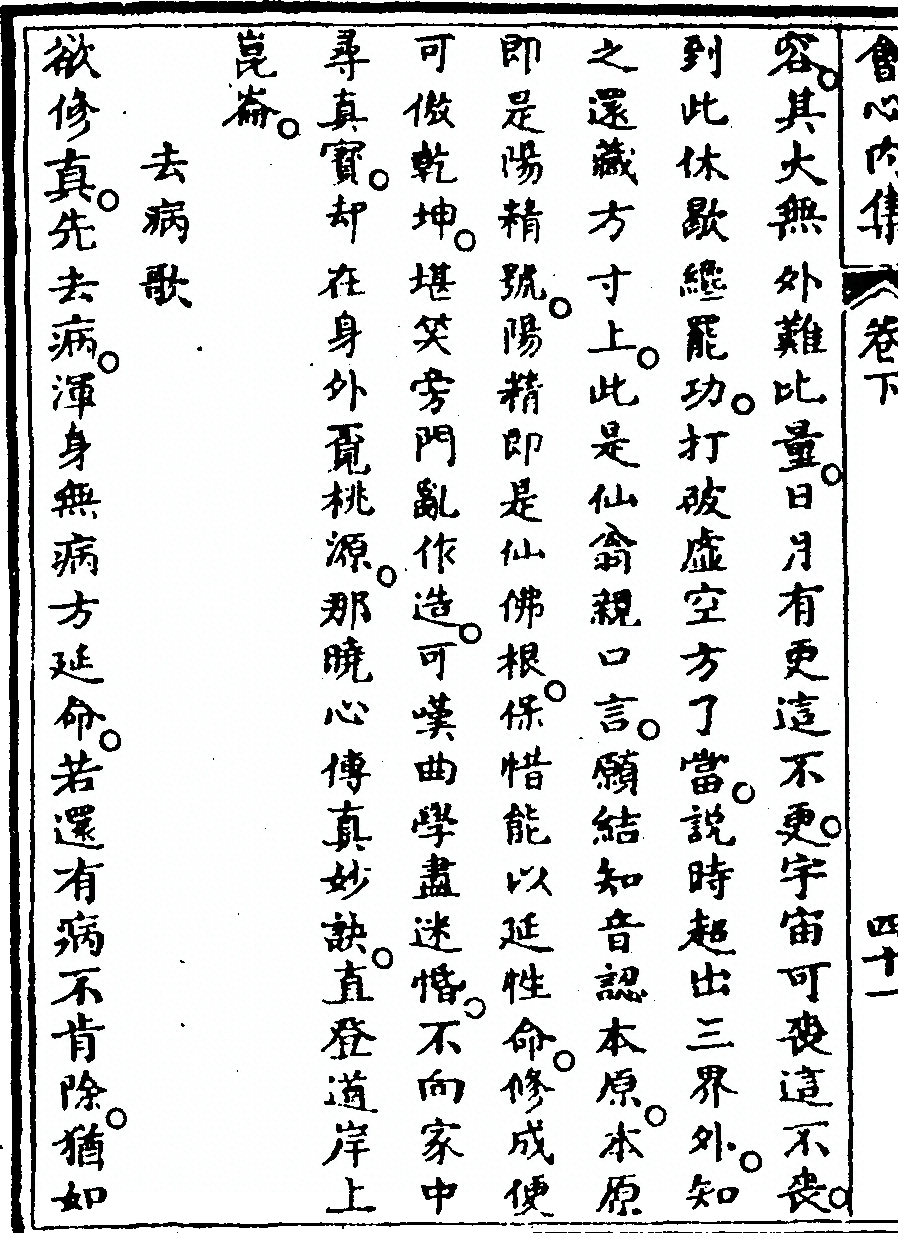 會心內集 卷下 四十一
容。其大無外難比量。日月有更這不更。宇宙可喪這不喪。
到此休歇纔罷功。打破虛空方了當。說時超出三界外。知
之還藏方寸上。此是仙翁親口言。願結知音認本原。本原
即是陽精號。陽精即是仙佛根。保惜能以延性命。修成便
可倣乾坤。堪笑旁門亂作造。可嘆曲學盡迷惛。不向家中
尋真寶。却在身外覓桃源。那曉心傳真妙訣。直登道岸上
崑崙。
去病歌
欲修真。先去病。渾身無病方延命。若還有病不肯除。猶如